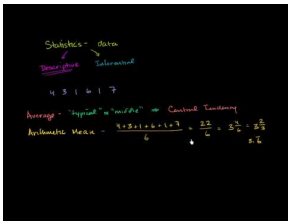 Statistics - data
Descriptive Inferential
4 3 1 6 1 7
Average - "typical" or "middle" ⇒ Central Tendency
Arithmetic Mean - 4+3+1+6+1+7 / 6 = 22/6 = 3 4/6 = 3 2/3
3.6̅